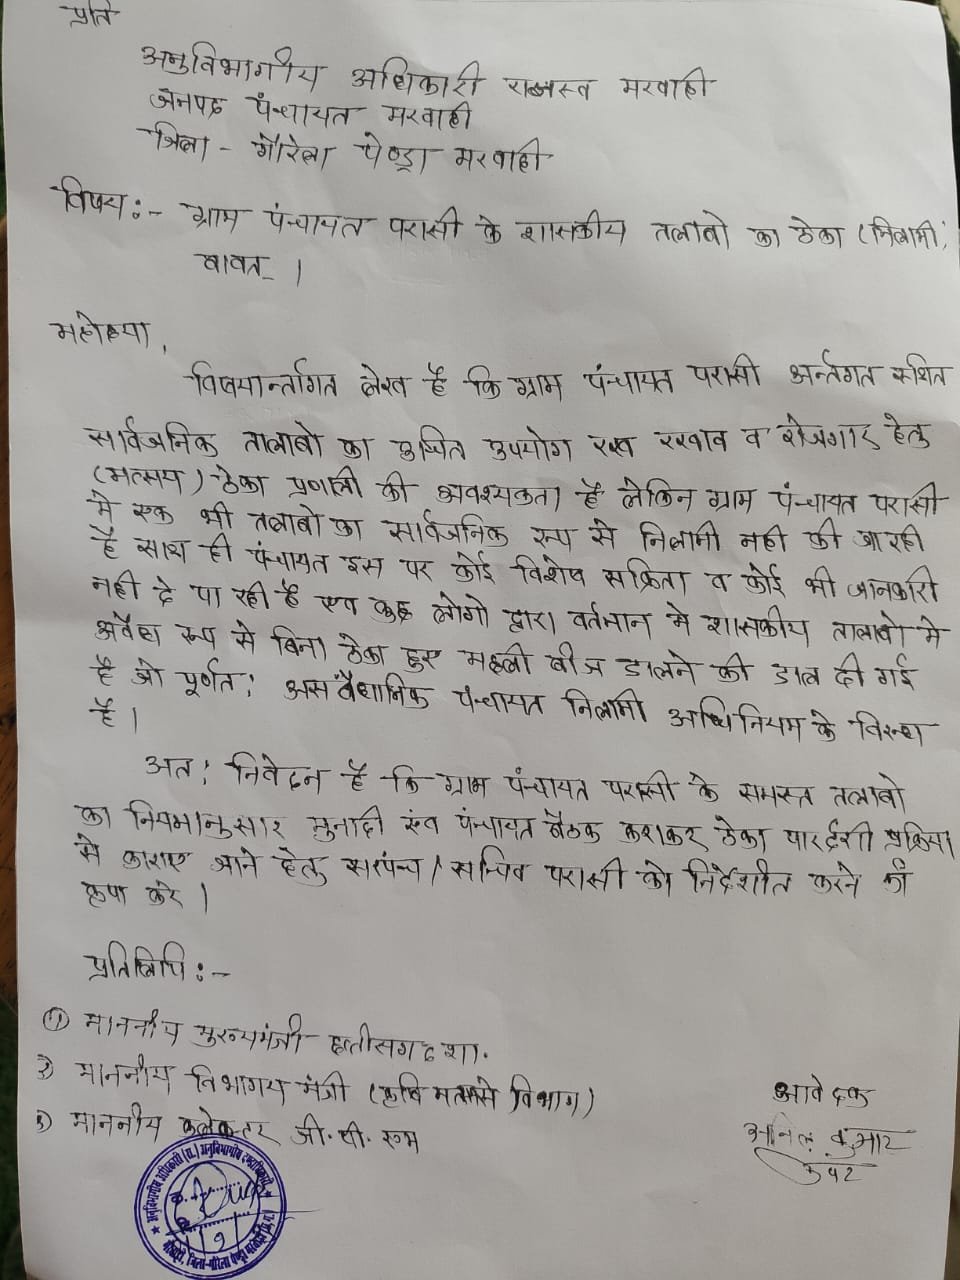 प्रति
अनुविभागीय अधिकारी राजस्व मरवाही
जनपद पंचायत मरवाही
जिला - गौरेला पेण्ड्रा मरवाही
विषय :- ग्राम पंचायत परासी के शासकीय तलाबो का ठेका (निलामी)
बावत् ।
महोदया,
विषयार्न्तागत लेख है कि ग्राम पंचायत परासी अर्न्तगत स्थित
सार्वजनिक तालाबो का उचित उपयोग रख रखाव व रोजगार हेतु
(मत्सय) ठेका प्रणाली की आवश्यकता है लेकिन ग्राम पंचायत परासी
मे एक भी तलाबो का सार्वजनिक रूप से निलामी नही की जा रही
है साथ ही पंचायत इस पर कोई विशेष सक्रिता व कोई भी जानकारी
नही दे पा रही है एव कुछ लोगो द्वारा वर्तमान मे शासकीय तालाबो मे
अवैध रूप से बिना ठेका हुए मछली बीज डालने की डाल दी गई
है जो पूर्णत: असंवैधानिक पंचायत निलामी अधिनियम के विरूध
है ।
अत: निवेदन है कि ग्राम पंचायत परासी के समस्त तलाबो
का नियमानुसार मुनादी एंव पंचायत बैठक कराकर ठेका पारर्दशी प्रक्रिया
से काराए जाने हेतु सरपंच / सचिव परासी को निर्देशीत करने की
कृपा करे ।
प्रतिलिपि :-
1) माननीय मुख्यमंत्री छत्तीसगढ शा.
2) माननीय विभागय मंत्री (कृषि मत्स्य विभाग)
3) माननीय कलेक्टर जी. पी. एम
आवेदक
अनिल कुमार
अनुविभागीय अधिकारी (रा.) अनुविभागीय दण्डाधिकारी
मरवाही, जिला-गौरेला पेण्ड्रा मरवाही (छ.ग.)